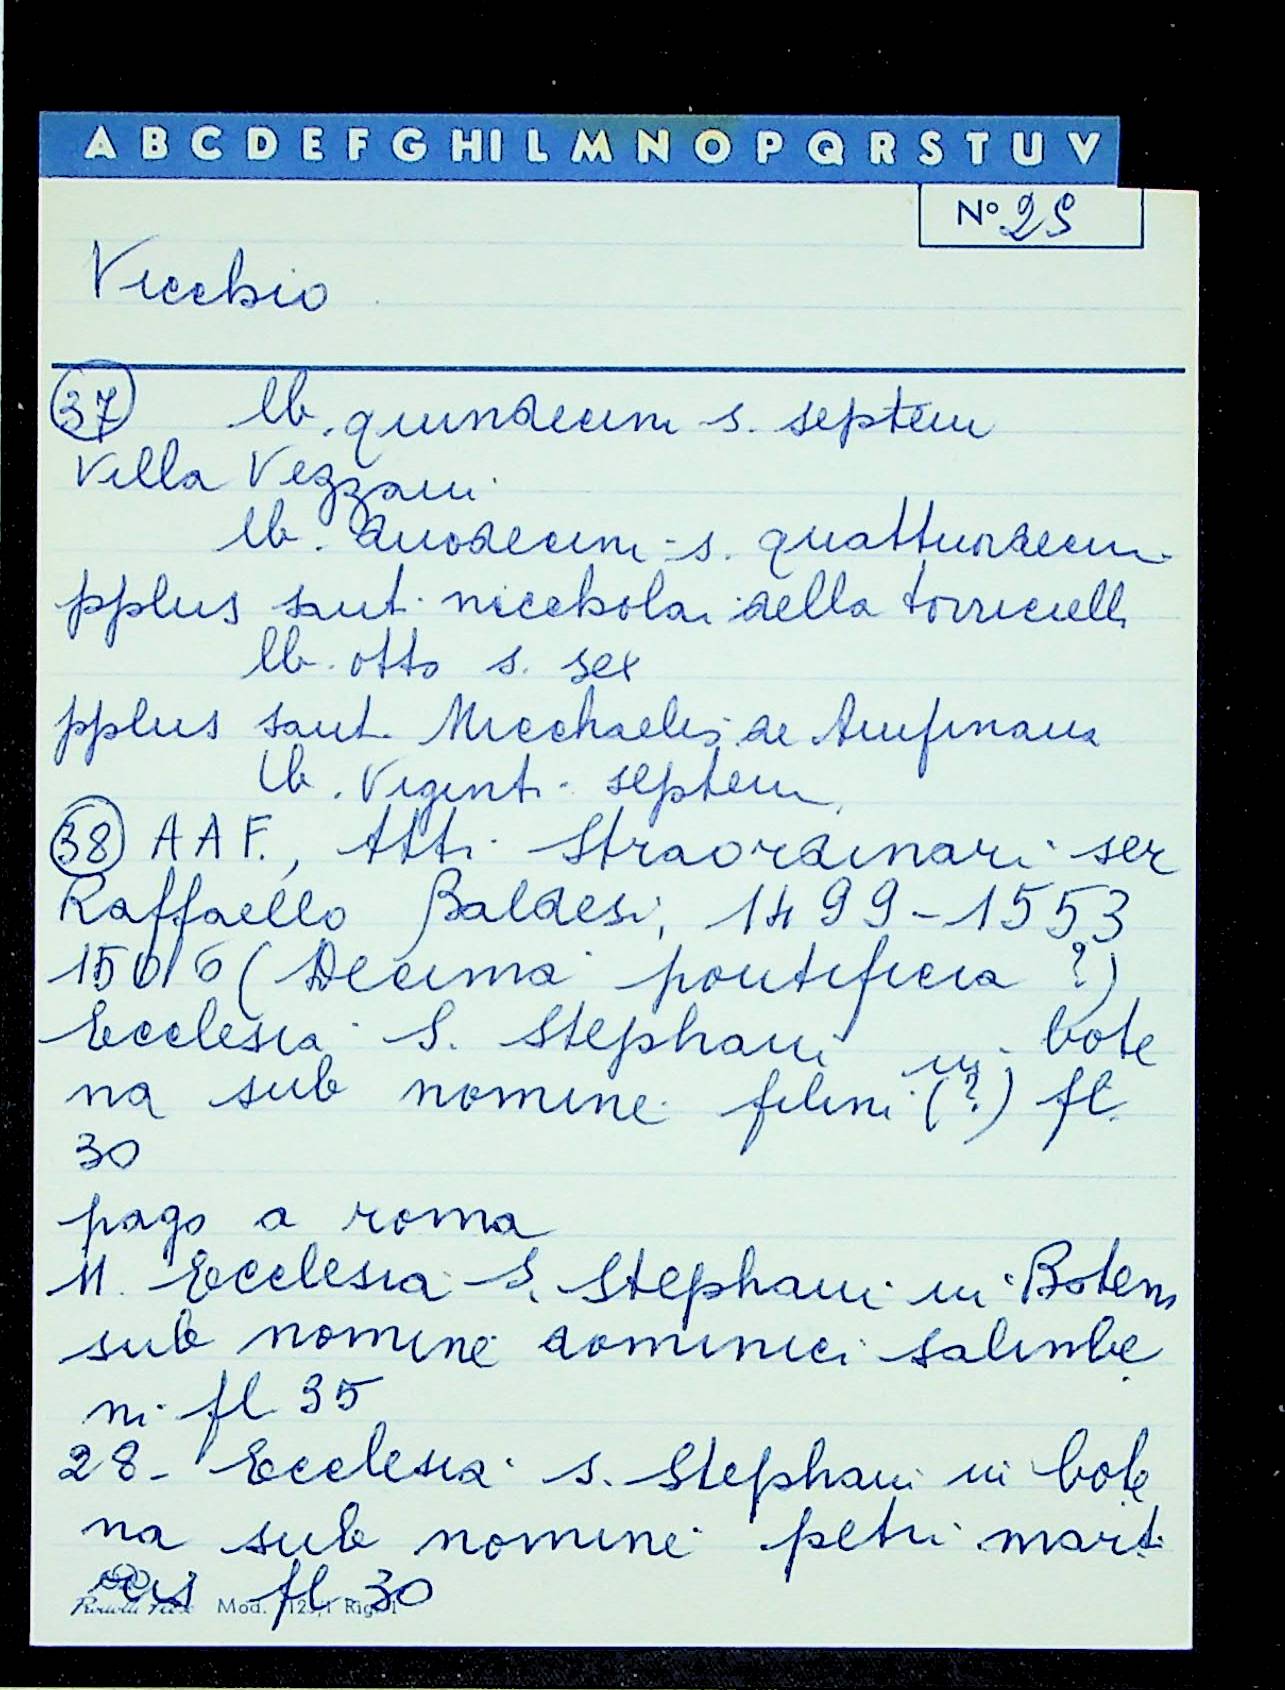 A B C D E F G H I L M N O P Q R S T U V
N° 29
Vicchio
37 lb. quindecim s. septem
Villa Vezzani
lb. duodecim s. quattuordecim
pplus sant. niccholai della torricella
lb. otto s. sex
pplus sant. Micchaelis de Ampinana
lb. Viginti septem
38 A A F., Atti Straordinari ser
Raffaello Baldesi, 1499-1553
1516 (Decima pontificia ?)
Ecclesia S. Stephani in bote
na sub nomine filini (?) fl.
30
pago a roma
11. Ecclesia S. Stephani in Botena
sub nomine dominici salimbe
ni fl 35
28- Ecclesia s. Stephani in bote
na sub nomine petri mart
fl 30
Mod. Rig. 1